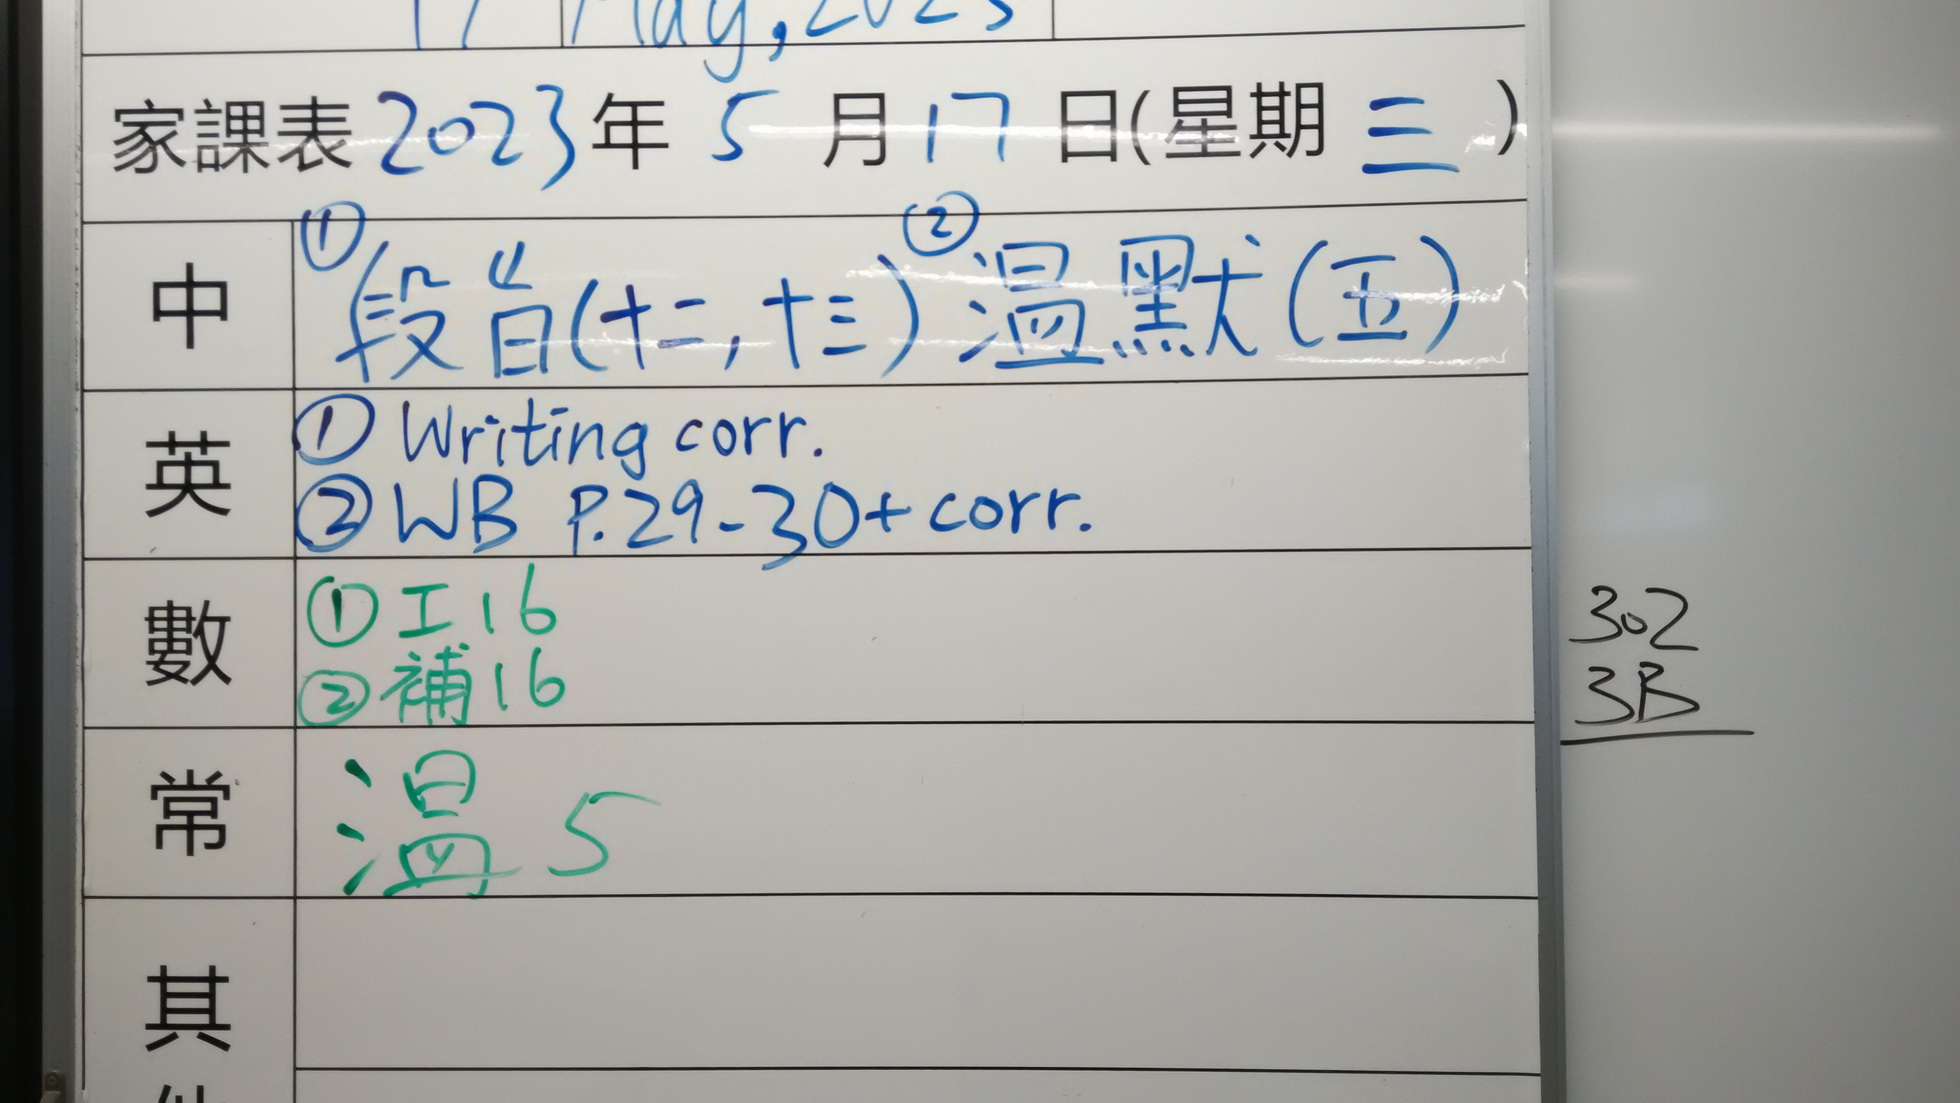 17 May, 2023
家課表 2023 年 5 月 17 日(星期 三 )
中 ① 段旨(十二, 十三) ② 温默(五)
英 ① Writing corr.
② WB P.29-30 + corr.
數 ① 工16
② 補16
常 温 5
其
302
3B